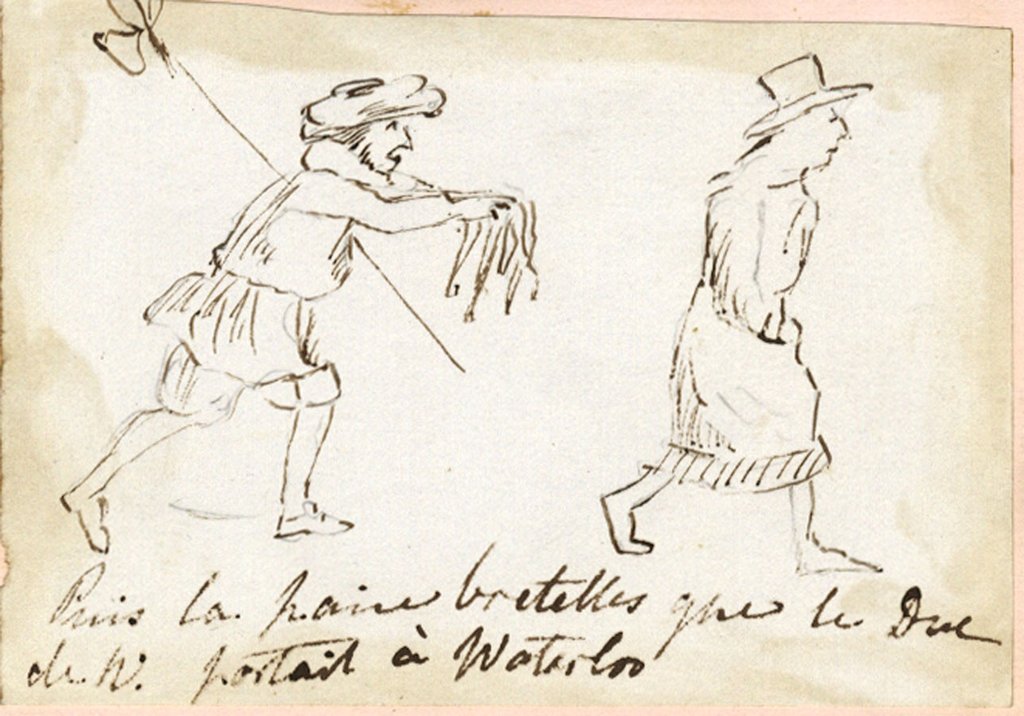 Puis la paire bretelles que le Duc
de W. portait à Waterloo